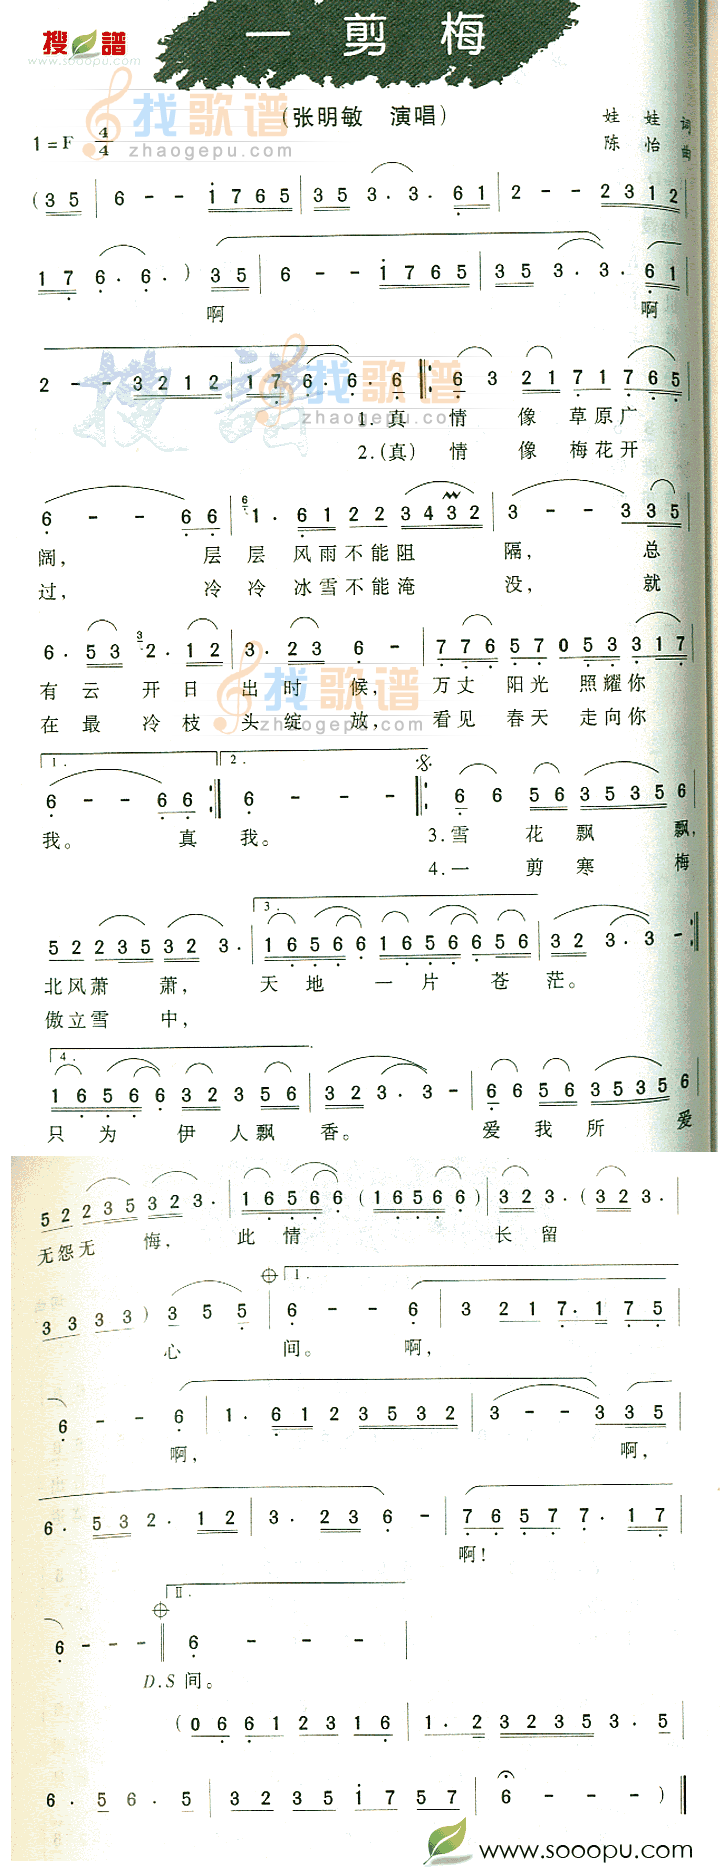 搜譜
www.sooopu.com
一剪梅
找歌谱
zhaogepu.com
(张明敏 演唱)
娃娃 词
陈怡 曲
1=F 4/4
(3 5 | 6 - - 1 7 6 5 | 3 5 3 . 3 . 6 1 | 2 - - 2 3 1 2
1 7 6 . 6 . ) 3 5 | 6 - - 1 7 6 5 | 3 5 3 . 3 . 6 1
啊 啊
2 - - 3 2 1 2 | 1 7 6 . 6 . 6 ‖: 6 3 2 1 7 1 7 6 5
1.真 情 像 草原广
2.(真) 情 像 梅花开
搜譜
找歌谱
zhaogepu.com
6 - - 6 6 | 6 1 . 6 1 2 2 3 4 3 2 | 3 - - 3 3 5
阔, 层层 风雨不能阻 隔, 总
过, 冷冷 冰雪不能淹 没, 就
6 . 5 3 3 2 . 1 2 | 3 . 2 3 6 - | 7 7 6 5 7 0 5 3 3 1 7
有云 开日 出时 候, 万丈 阳光 照耀你
在最 冷枝 头绽 放, 看见 春天 走向你
找歌谱
zhaogepu.com
1. 2. 𝄋
6 - - 6 6 :‖ 6 - - - ‖: 6 6 5 6 3 5 3 5 6
我。 真 我。 3.雪 花 飘 飘,
4.一 剪 寒 梅
3.
5 2 2 2 3 5 3 2 3 . | 1 6 5 6 6 1 6 5 6 6 5 6 | 3 2 3 . 3 - :‖
北风萧 萧, 天 地 一 片 苍 茫。
傲立雪 中,
4.
1 6 5 6 6 3 2 3 5 6 | 3 2 3 . 3 - | 6 6 5 6 3 5 3 5 6
只 为 伊 人飘 香。 爱 我 所 爱
5 2 2 2 3 5 3 2 3 . | 1 6 5 6 6 (1 6 5 6 6) | 3 2 3 . (3 2 3 .
无怨无 悔, 此 情 长 留
1.
3 3 3 3) 3 5 5 | 6 - - 6 | 3 2 1 7 . 1 7 5
心 间。 啊,
6 - - 6 | 1 . 6 1 2 3 5 3 2 | 3 - - 3 3 5
啊, 啊,
6 . 5 3 2 . 1 2 | 3 . 2 3 6 - | 7 6 5 7 7 . 1 7
啊!
II.
6 - - - ‖ 6 - - - |
D.S 间。
(0 6 6 1 2 3 1 6 | 1 . 2 3 2 3 5 3 . 5
6 . 5 6 . 5 | 3 2 3 5 1 7 5 7 | 6 - - ) ‖
www.sooopu.com